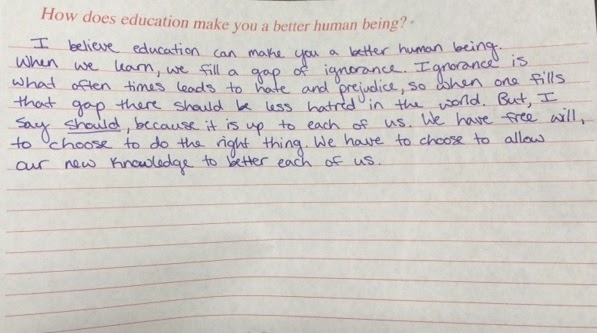 How does education make you a better human being?
I believe education can make you a better human being.
When we learn, we fill a gap of ignorance. Ignorance is
what often times leads to hate and prejudice, so when one fills
that gap there should be less hatred in the world. But, I
say should, because it is up to each of us. We have free will,
to choose to do the right thing. We have to choose to allow
our new knowledge to better each of us.